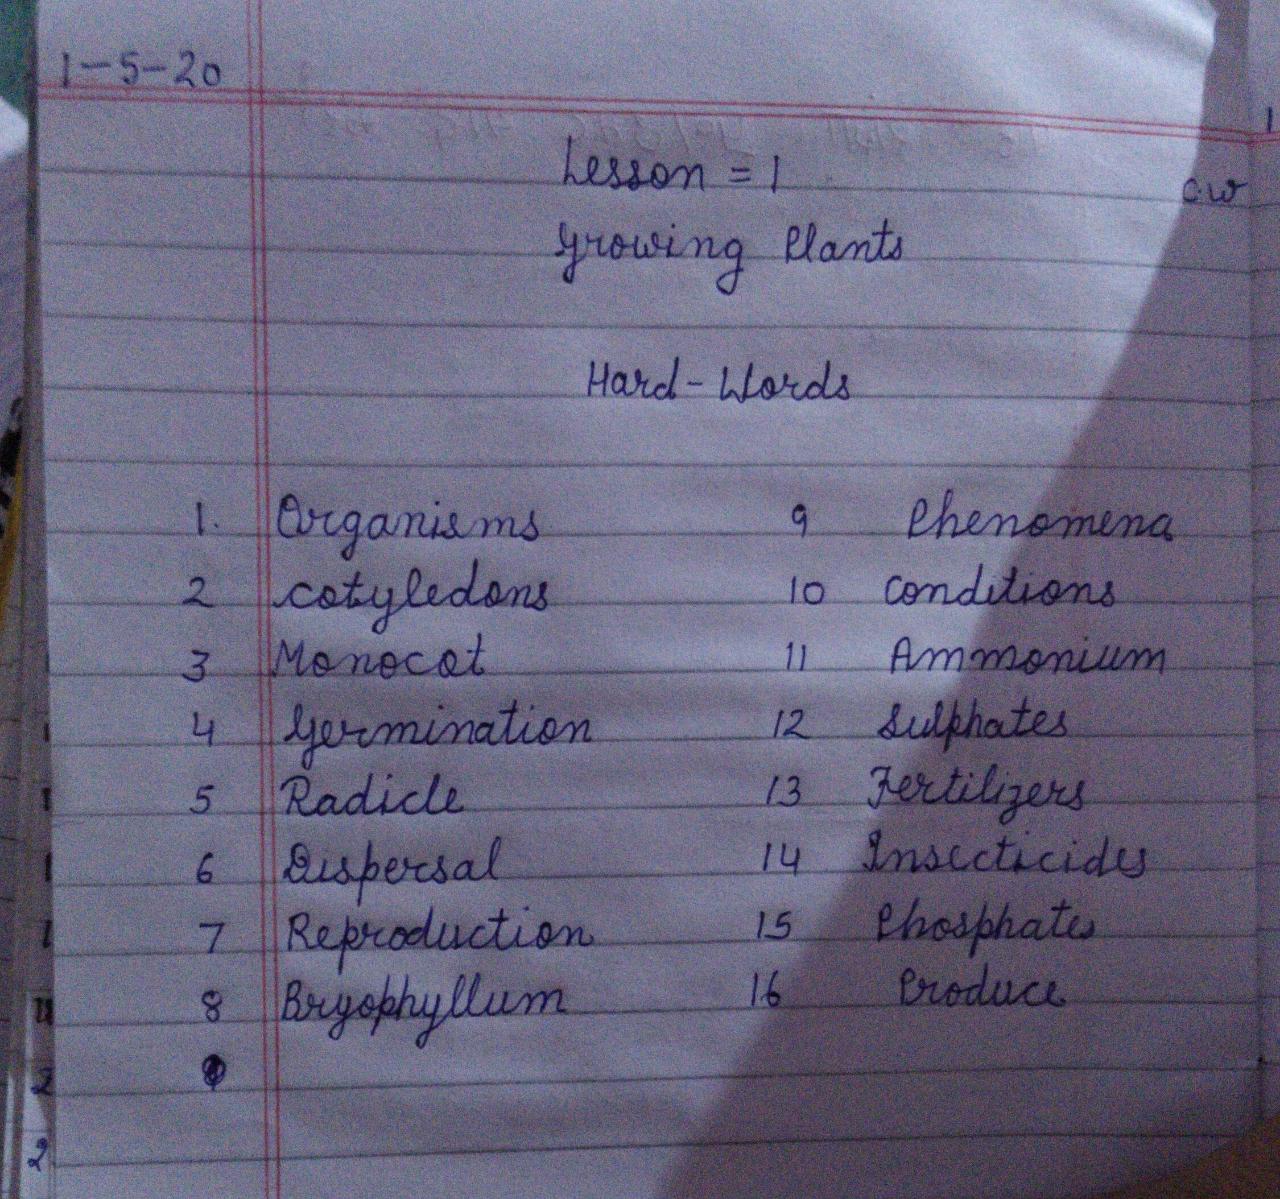 1-5-20
Lesson = 1
C.W
Growing Plants
Hard-Words
1. Organisms
2 cotyledons
3 Monocot
4 Germination
5 Radicle
6 Dispersal
7 Reproduction
8 Bryophyllum
9 Phenomena
10 Conditions
11 Ammonium
12 Sulphates
13 Fertilizers
14 Insecticides
15 Phosphates
16 Produce